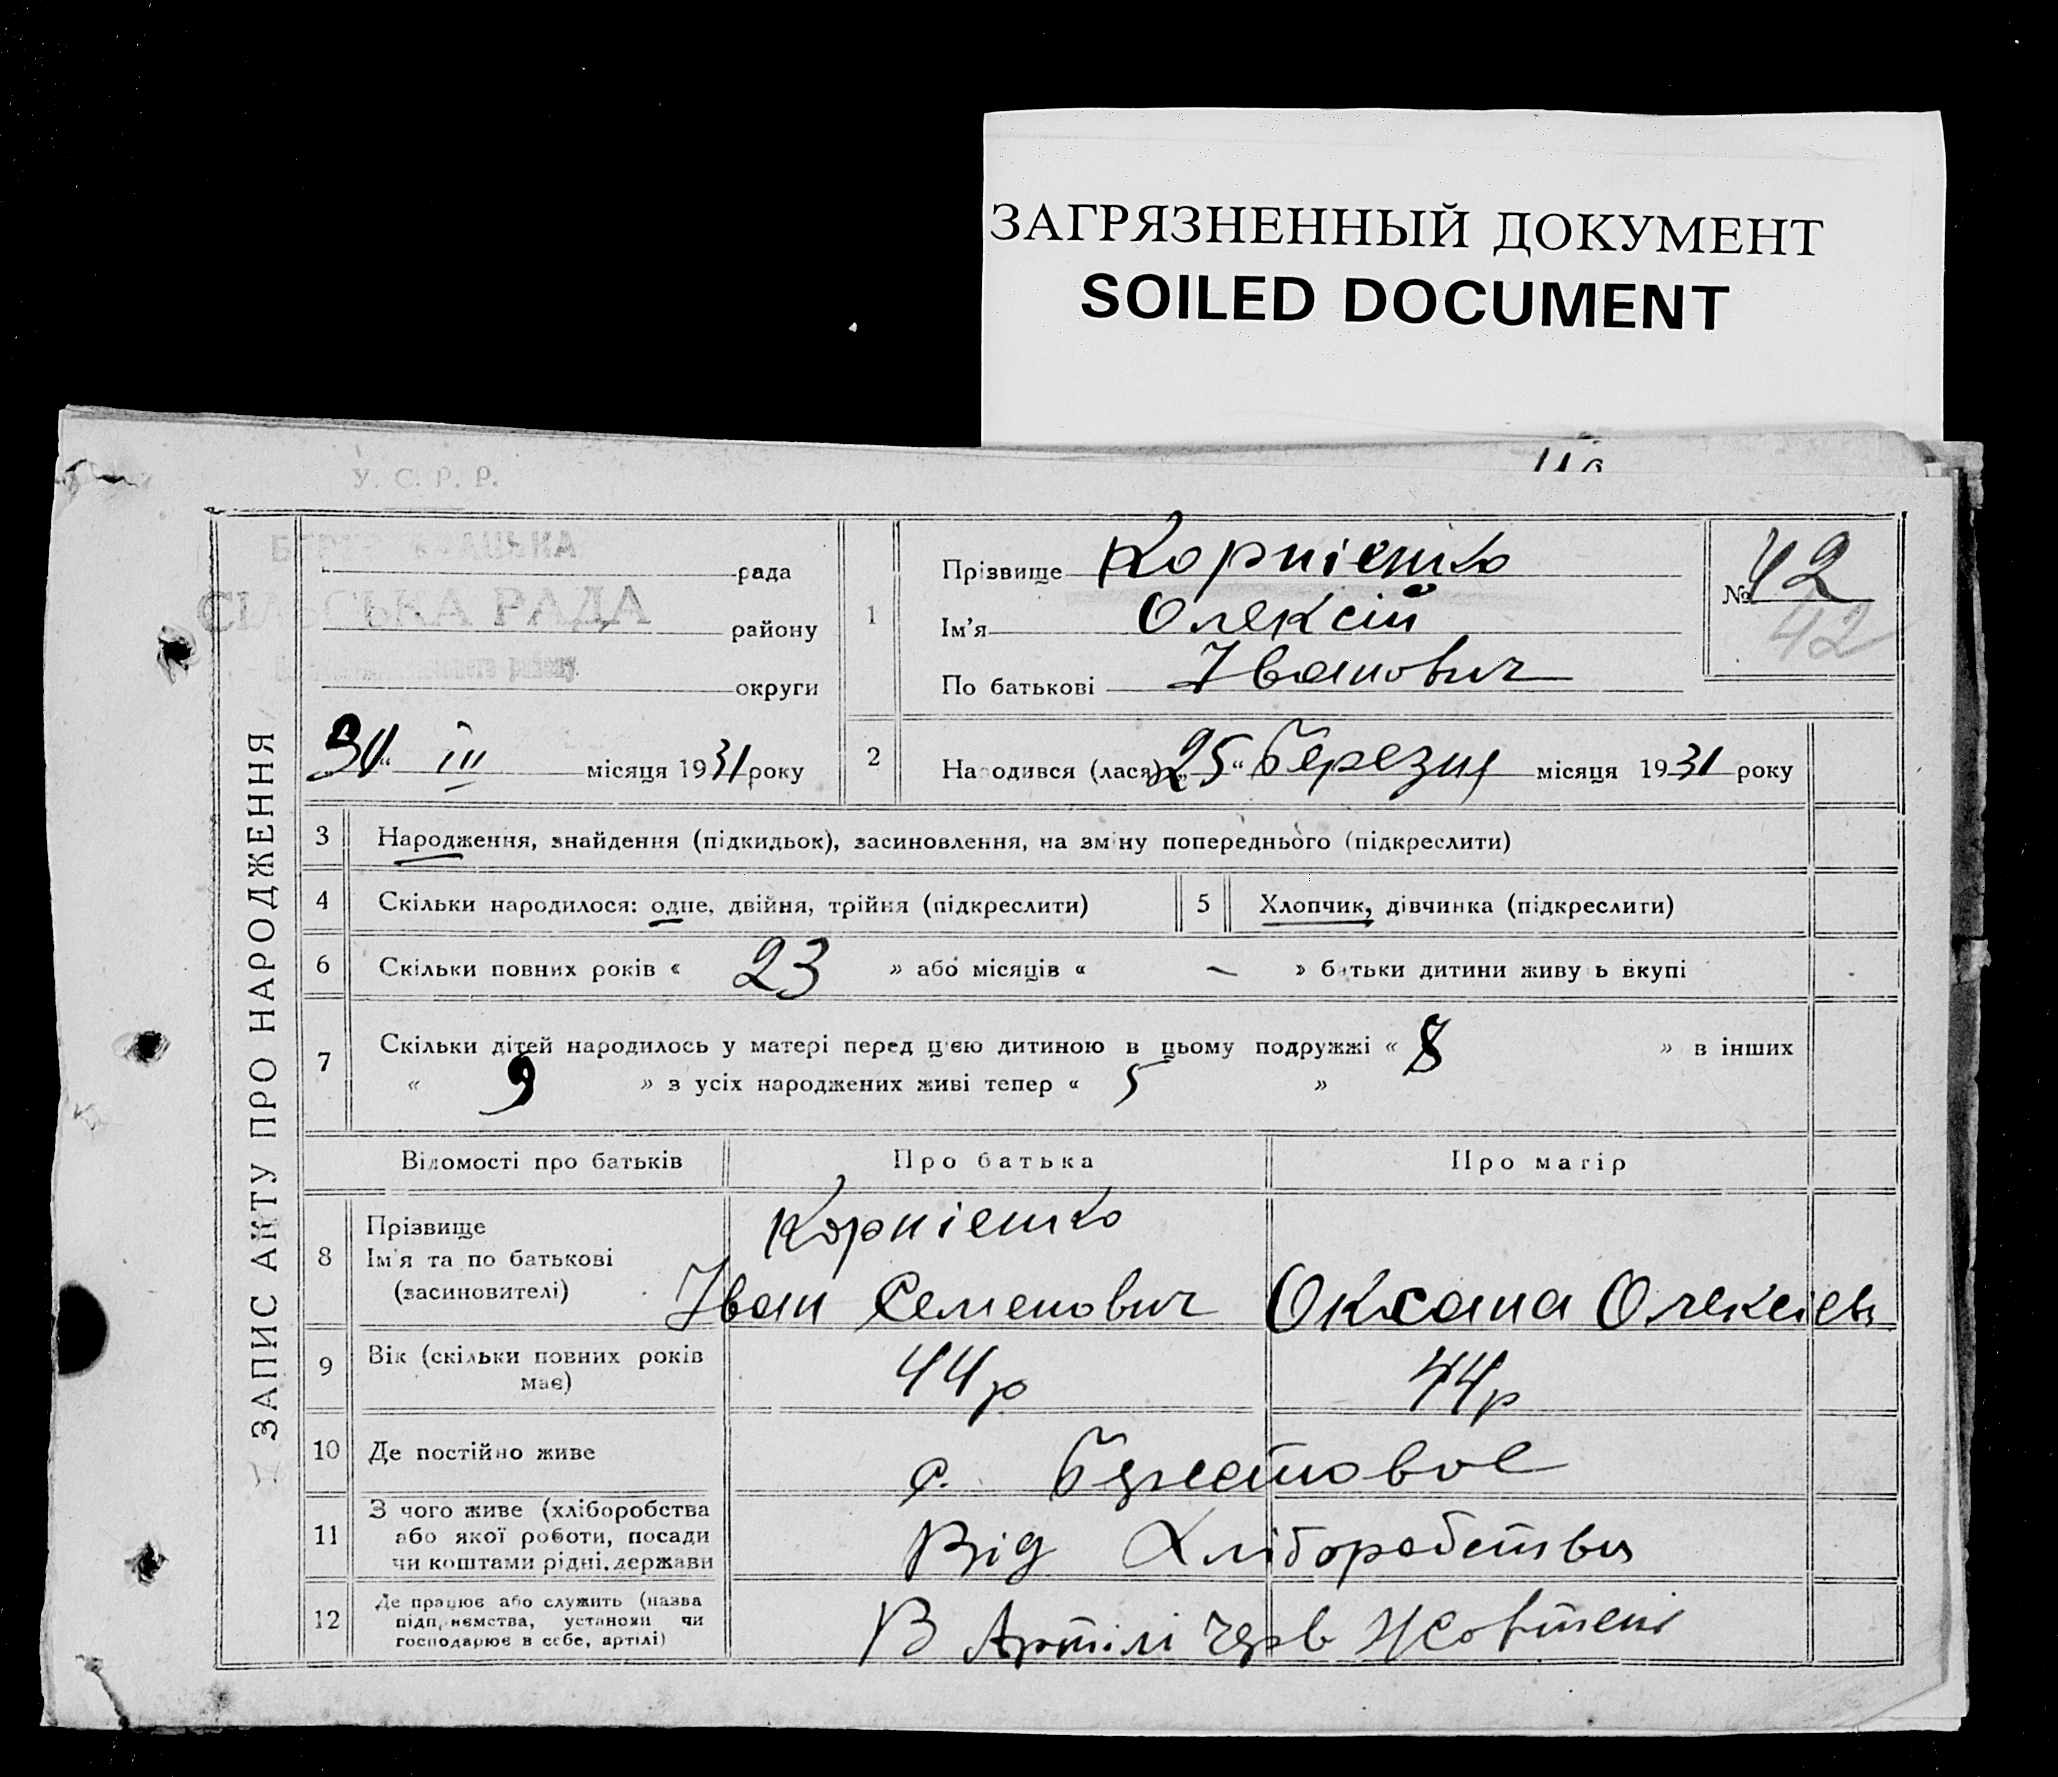 ЗАГРЯЗНЕННЫЙ ДОКУМЕНТ
SOILED DOCUMENT
У. С. Р. Р.
ЗАПИС АКТУ ПРО НАРОДЖЕННЯ
рада
СІЛЬСЬКА РАДА
району
району
округи
III місяця 1931 року
1
Прізвище Корнієнко
Ім'я Олексій
По батькові Іванович
№ 42
42
2
Народився (лася) „25“ Березня місяця 1931 року
3 Народження, знайдення (підкидьок), засиновлення, на зміну попереднього (підкреслити)
4 Скільки народилося: одне, двійня, трійня (підкреслити)
5 Хлопчик, дівчинка (підкреслити)
6 Скільки повних років « 23 » або місяців « — » батьки дитини живуть вкупі
7 Скільки дітей народилось у матері перед цією дитиною в цьому подружжі « 8 » в інших
« 9 » з усіх народжених живі тепер « 5 »
Відомості про батьків
Про батька
Про матір
8 Прізвище
Ім'я та по батькові
(засиновителі)
Корнієнко
Іван Семенович
Оксана Олексієв
9 Вік (скільки повних років
має)
44 р
44 р
10 Де постійно живе
с.
11 З чого живе (хліборобства
або якої роботи, посади
чи коштами рідні, держави
Від Хліборобства
12 Де працює або служить (назва
підприємства, установи чи
господарює в себе, артілі)
В Артілі Черв Жовтень